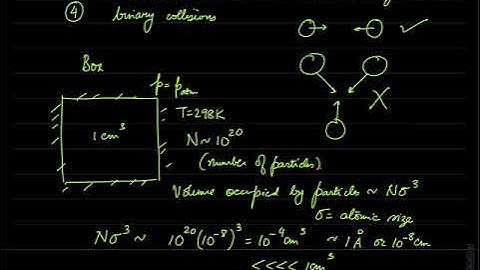 ④ binary collisions
Box
p = p_atm
T = 298K
1 cm³
N ~ 10²⁰
(number of particles)
Volume occupied by particles ~ Nσ³
σ = atomic size
Nσ³ ~ 10²⁰(10⁻⁸)³ = 10⁻⁴cm³ ~ 1Å or 10⁻⁸cm
<<<< 1cm³